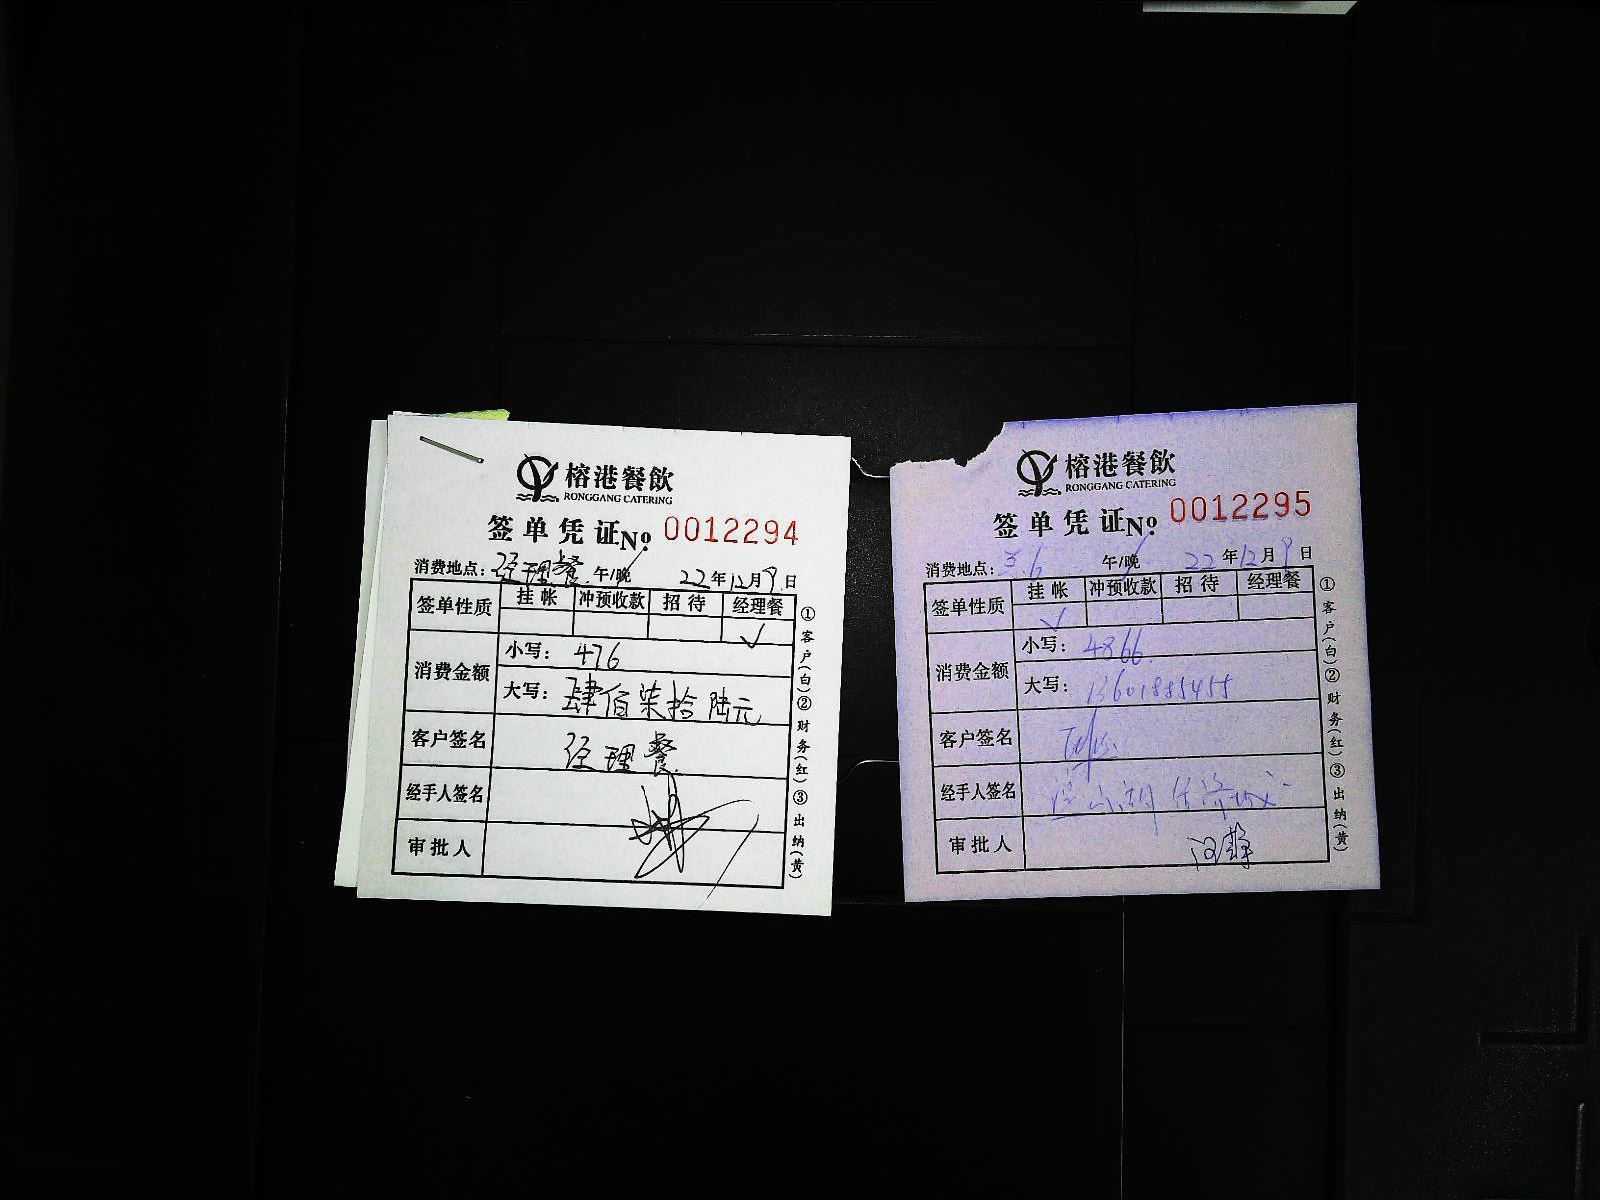 榕港餐飲
RONGGANG CATERING
签单凭证№ 0012294
消费地点：经理餐 午/晚 22年12月9日
签单性质 挂帐 冲预收款 招待 经理餐
✓
消费金额 小写：476
大写：肆佰柒拾陆元
客户签名 经理餐
经手人签名
审批人
①客户(白)②财务(红)③出纳(黄)
榕港餐飲
RONGGANG CATERING
签单凭证№ 0012295
消费地点： 午/晚 22年12月9日
签单性质 挂帐 冲预收款 招待 经理餐
✓
消费金额 小写：4866
大写：13601885455
客户签名
经手人签名
审批人
①客户(白)②财务(红)③出纳(黄)